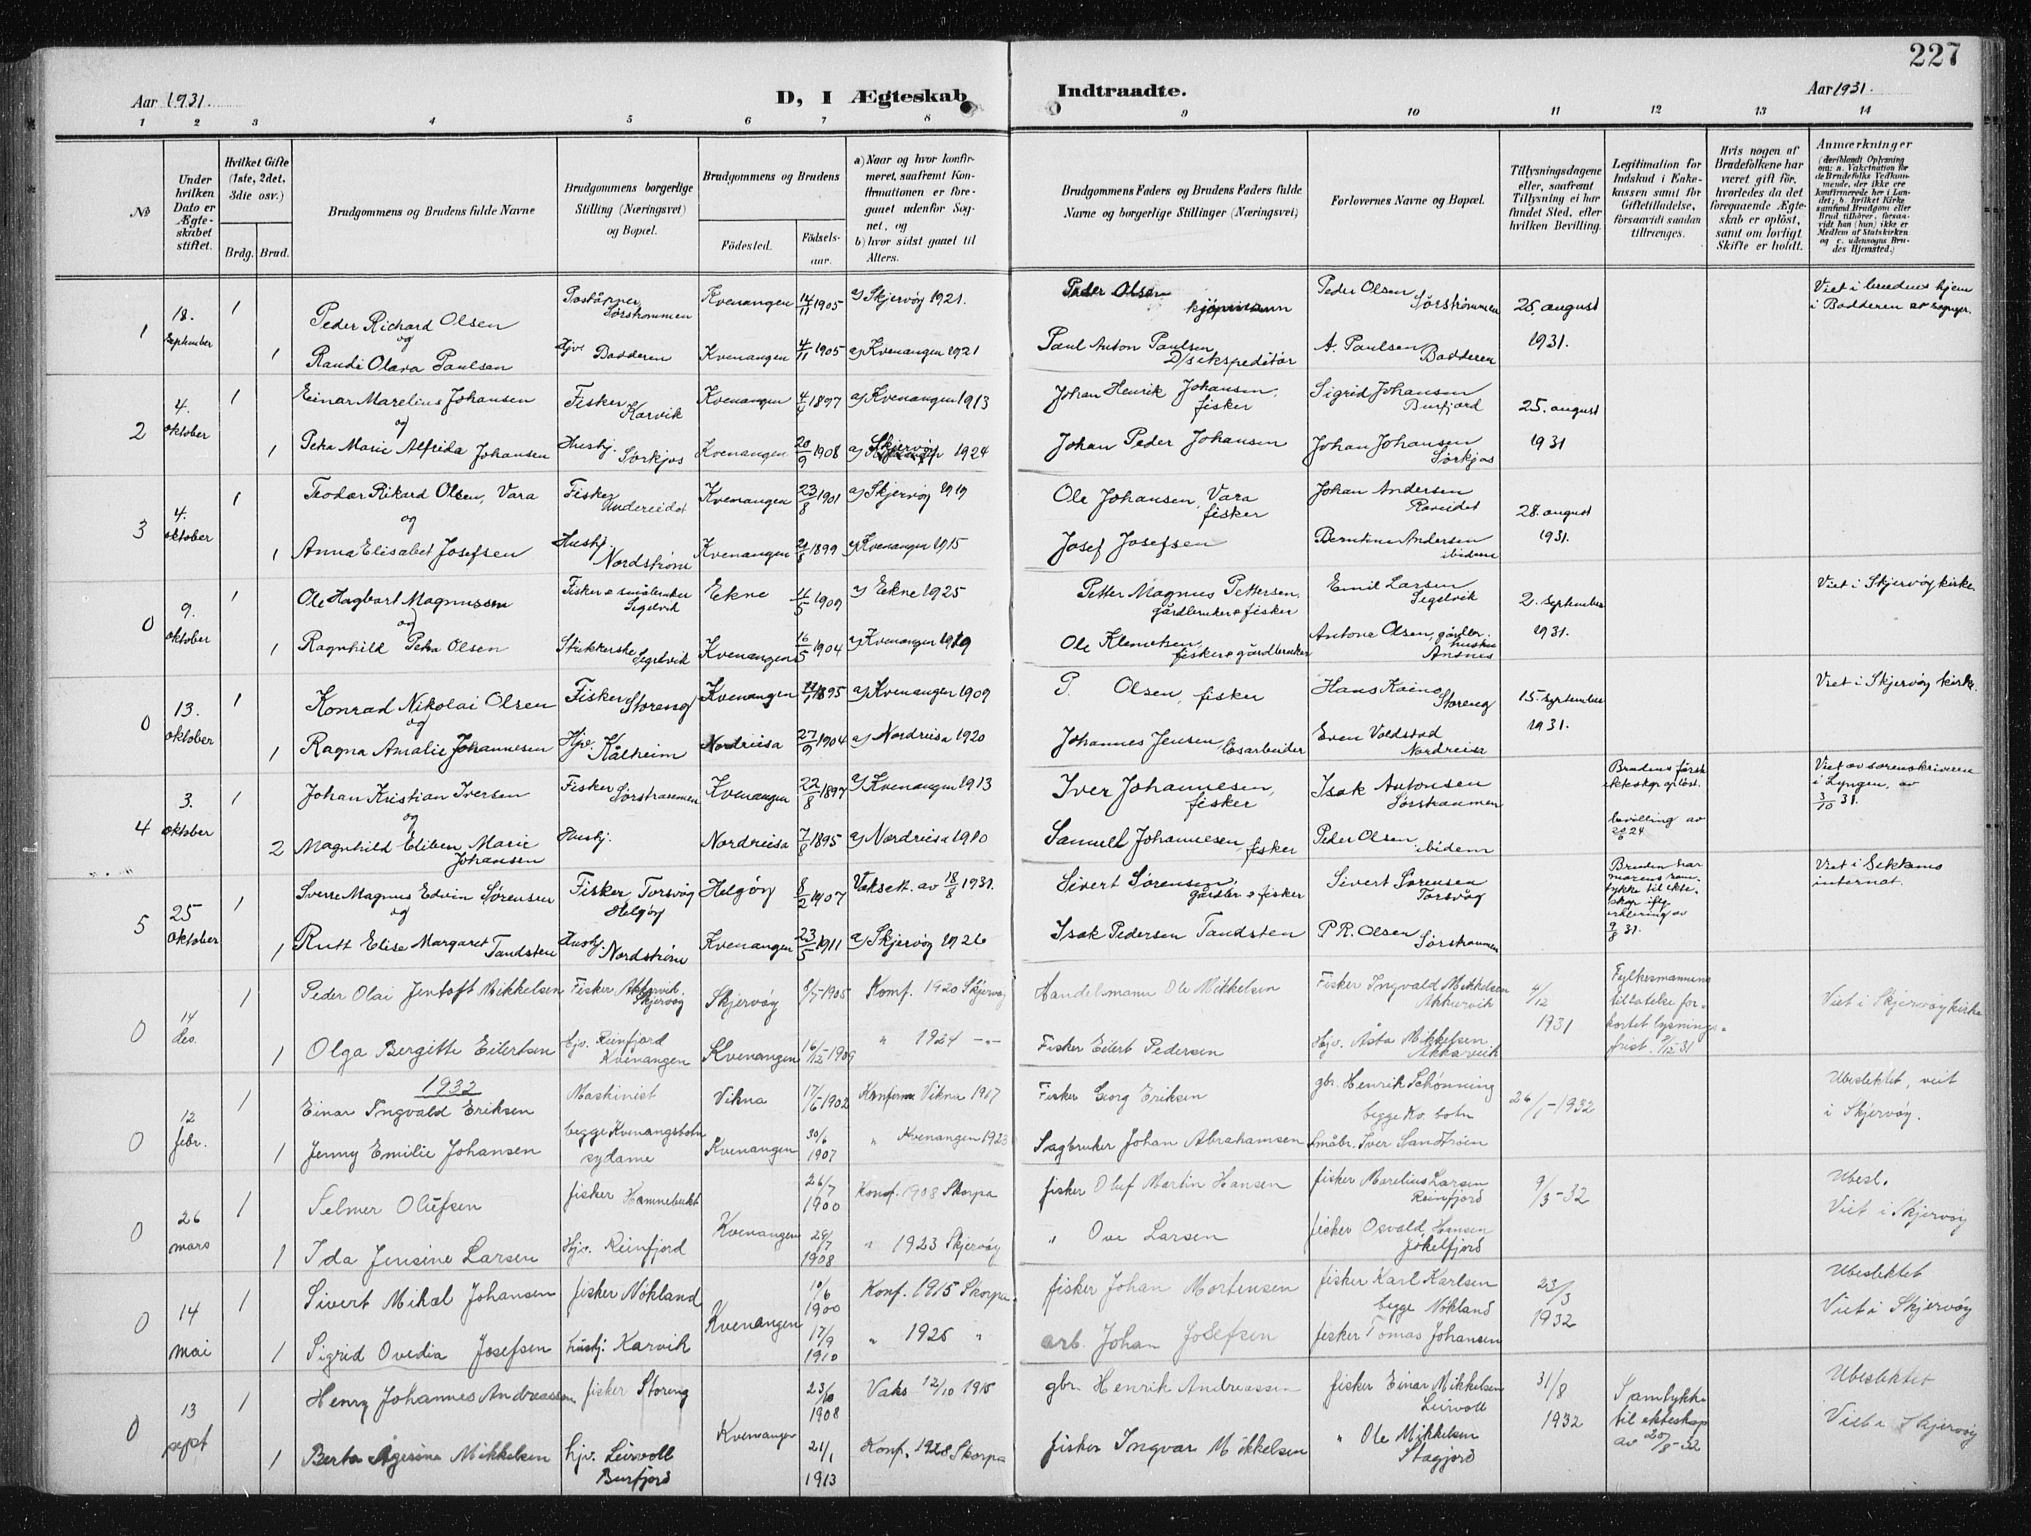 227
Aar 1931.
D, I Ægteskab Indtraadte.
Aar 1931.
1 2 3 4 5 6 7 8 9 10 11 12 13 14
№
Under hvilken Dato er Ægteskabet stiftet.
Hvilket Gifte (1ste, 2det, 3die osv.)
Brdg. Brud.
Brudgommens og Brudens fulde Navne
Brudgommens borgerlige Stilling (Næringsvei) og Bopæl.
Brudgommens og Brudens
Födested.
Födselsaar.
a) Naar og hvor konfirmeret, saafremt Konfirmationen er foregaaet udenfor Sognet, og
b) hvor sidst gaaet til Alters.
Brudgommens Faders og Brudens Faders fulde Navne og borgerlige Stillinger (Næringsvei)
Forlovernes Navne og Bopæl.
Tillysningsdagene eller, saafremt Tillysning ei har fundet Sted, efter hvilken Bevilling.
Legitimation for Indskud i Enkekassen samt for Giftetilladelse, forsaavidt saadan tiltrænges.
Hvis nogen af Brudefolkene har været gift för, hvorledes da det foregaaende Ægteskab er oplöst, samt om lovligt Skifte er holdt.
Anmærkninger
1 18. september 1 Peder Richard Olsen Sørstrommen Kvenangen 14/11 1905 a) Skjervøy 1921. Peder Olsen kjøpmann Peder Olsen Sørstrømmen 25. august Viet i brudens hjem i Badderen
og
1 Randi Olava Paulsen Hjv. Badderen Kvenangen 4/11 1905 a) Kvenangen 1921 Paul Anton Paulsen D/s ekspeditør A. Paulsen Badderen 1931.
2 4. oktober 1 Einar Marelius Johansen Fisker Karvik Kvenangen 1897 a) Kvenangen 1913 Johan Henrik Johansen, fisker Sigrid Johansen Burfjord 25. august
og
1 Petra Marie Alfrida Johansen Husbj. Sørkjos Kvenangen 20/9 1908 a) Skjervøy 1924 Johan Peder Johansen Johan Johansen Sørkjos 1931
3 4. oktober 1 Teodor Rikard Olsen, Vara Fisker Undereidet Kvenangen 23/8 1901 a) Skjervøy 1919 Ole Johansen, Vara fisker Johan Andersen 28. august
og
1 Anna Elisabet Josefsen Husbj. Nordstrøm Kvenangen 1899 a) Kvenangen 1915 Josef Josefsen Berntine Andersen ibidem 1931.
0 9. oktober 1 Ole Hagbart Magnussen Fisker o småbruker Segelvik Ekne 1909 a) Ekne 1925 Petter Magnus Pettersen, gårdbruker o fisker Emil Larsen Segelvik 2. september Viet i Skjervøy kirke.
og
1 Ragnhild Petra Olsen Strikkerske Segelvik Kvenangen 16/5 1904 a) Kvenangen 1919 Ole Klemetsen, fisker o gårdbruker Antone Olsen, gårdbr. 1931.
0 13. oktober 1 Konrad Nikolai Olsen Fisker Storeng Kvenangen 1895 a) Kvenangen 1909 P. Olsen, fisker Hans Kaino Storeng 15. september Viet i Skjervøy kirke.
og
1 Ragna Amalie Johannesen Hjv. Kålheim Nordreisa 27/9 1904 a) Nordreisa 1920 Johannes Jensen, løsarbeider Even Voldstad Nordreisa 1931.
4 3. oktober 1 Johan Kristian Iversen Fisker Sørstraumen Kvenangen 22/8 1897 a) Kvenangen 1913 Iver Johannesen, fisker Isak Antonsen Sørstraumen Brudens første ekteskap opløst. Viet av sorenskriveren i Lyngen, av 3/10 31.
og
2 Magnhild Eliben Marie Johansen Husbj. Nordreisa 7/8 1895 a) Nordreisa 1910 Samuel Johannesen, fisker Peder Olsen ibidem bevilling av
5 25 oktober 1 Sverre Magnus Edvin Sørensen Fisker Torsvåg Helgøy Helgøy 8/2 1907 Vaksatt. av 18/8 1931. Sivert Sørensen, gårdbr. o fisker Sivert Sørensen Torsvåg Bruden har morens samtykke til ekteskap ifg. erklering av 9/8 31. Viet i Sekkemo internat.
og
1 Rutt Elise Margaret Tandsten Husbj. Nordstrøm Kvenangen 23/5 1911 a) Skjervøy 1926 Isak Pedersen Tandsten P.R. Olsen Sørstraumen
0 14 des. 1 Peder Olai Jentoft Mikkelsen Fisker, Akkarvik. Skjervøy Skjervøy 1905 Konf. 1920 Skjervøy Handelsmann Ole Mikkelsen Fisker Ingvald Mikkelsen Akkarvik 4/12 1931 Fylkesmannens tillatelse forkortet lysningsfrist. 9/12-31 Viet i Skjervøy kirke
1 Olga Bergitte Eilertsen hjv. Reinfjord Kvenangen Kvenangen 16/12-1909 " 1924 -"- Fisker Eilert Pedersen Hjv. Åsta Mikkelsen Akkarvik
1932
0 12 febr. 1 Einar Ingvald Eriksen Maskinist Vikna 17/6-1902 Konferm Vikna 1917 Fisker Georg Eriksen gbr. Henrik Schønning begge Kv. botn 26/1-1932 Ubeslektet, viet i Skjervøy.
1 Jenny Emilie Johansen begge Kvenangsbotn sydame Kvenangen 30/6 1907 " Kvenangen 1923 Sagbruker Johan Abrahamsen Småbr. Iver Sandstrøm
0 26 mars 1 Selmer Olufsen fisker Hamnebukt Kvenangen 26/7 1900 Konf. 1908 Skorpa fisker Oluf Martin Hansen fisker Marelius Larsen Reinfjord 9/3-32 Ubesl. Viet i Skjervøy
1 Ida Jensine Larsen Hjv. Reinfjord 29/7 1908 " 1923 Skjervøy " Ove Larsen fisker Osvald Hansen Jøkelfjord
0 14 mai 1 Sivert Mikal Johansen fisker Nokland Kvenangen 10/6 1900 Konf. 1915 Skorpa fisker Johan Mortensen fisker Karl Karlsen begge Nokland 23/3 1932 Ubeslektet Viet i Skjervøy
1 Sigrid Ovedia Josefsen husbj. Karvik 17/9 1910 " 1925 " arb. Johan Josefsen fisker Tomas Johansen
0 13 sept 1 Henry Johannes Andreassen fisker Storeng Kvenangen 23/10 1908 Vaks 12/10 1915 gbr. Henrik Andreassen fisker Einar Mikkelsen Leirvoll 31/8 1932 Samtykke til ekteskap av 20/8-32 Ubeslektet Viet i Skjervøy
1 Berta Agesine Mikkelsen hjv. Leirvoll Burfjord 21/1 1913 Konf. 1928 Skorpa fisker Ingvar Mikkelsen " Ole Mikkelsen